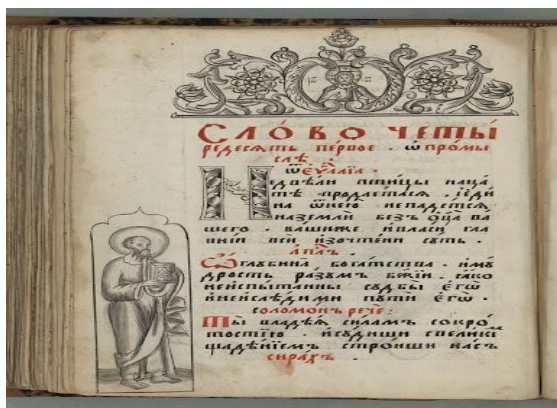 СЛО́ВО ЧЕТЫ́
редесѧть пе́рвое . ѡ҆ про́мы
слѣ̀ .
ѿ є҆ѵⷢ҇лїа .
Не двѣ́ли пти́цы на ца́
тѣ продае́тасѧ . і҆ є҆ди́
на ѿ нею̀ не паде́тсѧ
на земли̑ без̾ ѻ҆ц҃а̀ ва́
шего . ва́шиже и҆ власы̀ гла
внїи всѝ и҆зочте́ни су́ть .
а҆п҃лъ .
Ѽ глубина̀ бога́тства . и҆ му́
дрость ра́зумъ бж҃їи . ꙗ҆́ко
неиспыта́нны судбы̀ є҆гѡ̀
и҆ неизслѣ́дими путѝ є҆гѡ̀ .
соломо́нъ речѐ :
Ты̀ владѣ́ѧ си́лами с̾ кро́
тостїю . и҆ су́диши с̾ вели́кимъ
щадѣ́нїемъ стро́иши на́съ
сира́хъ .